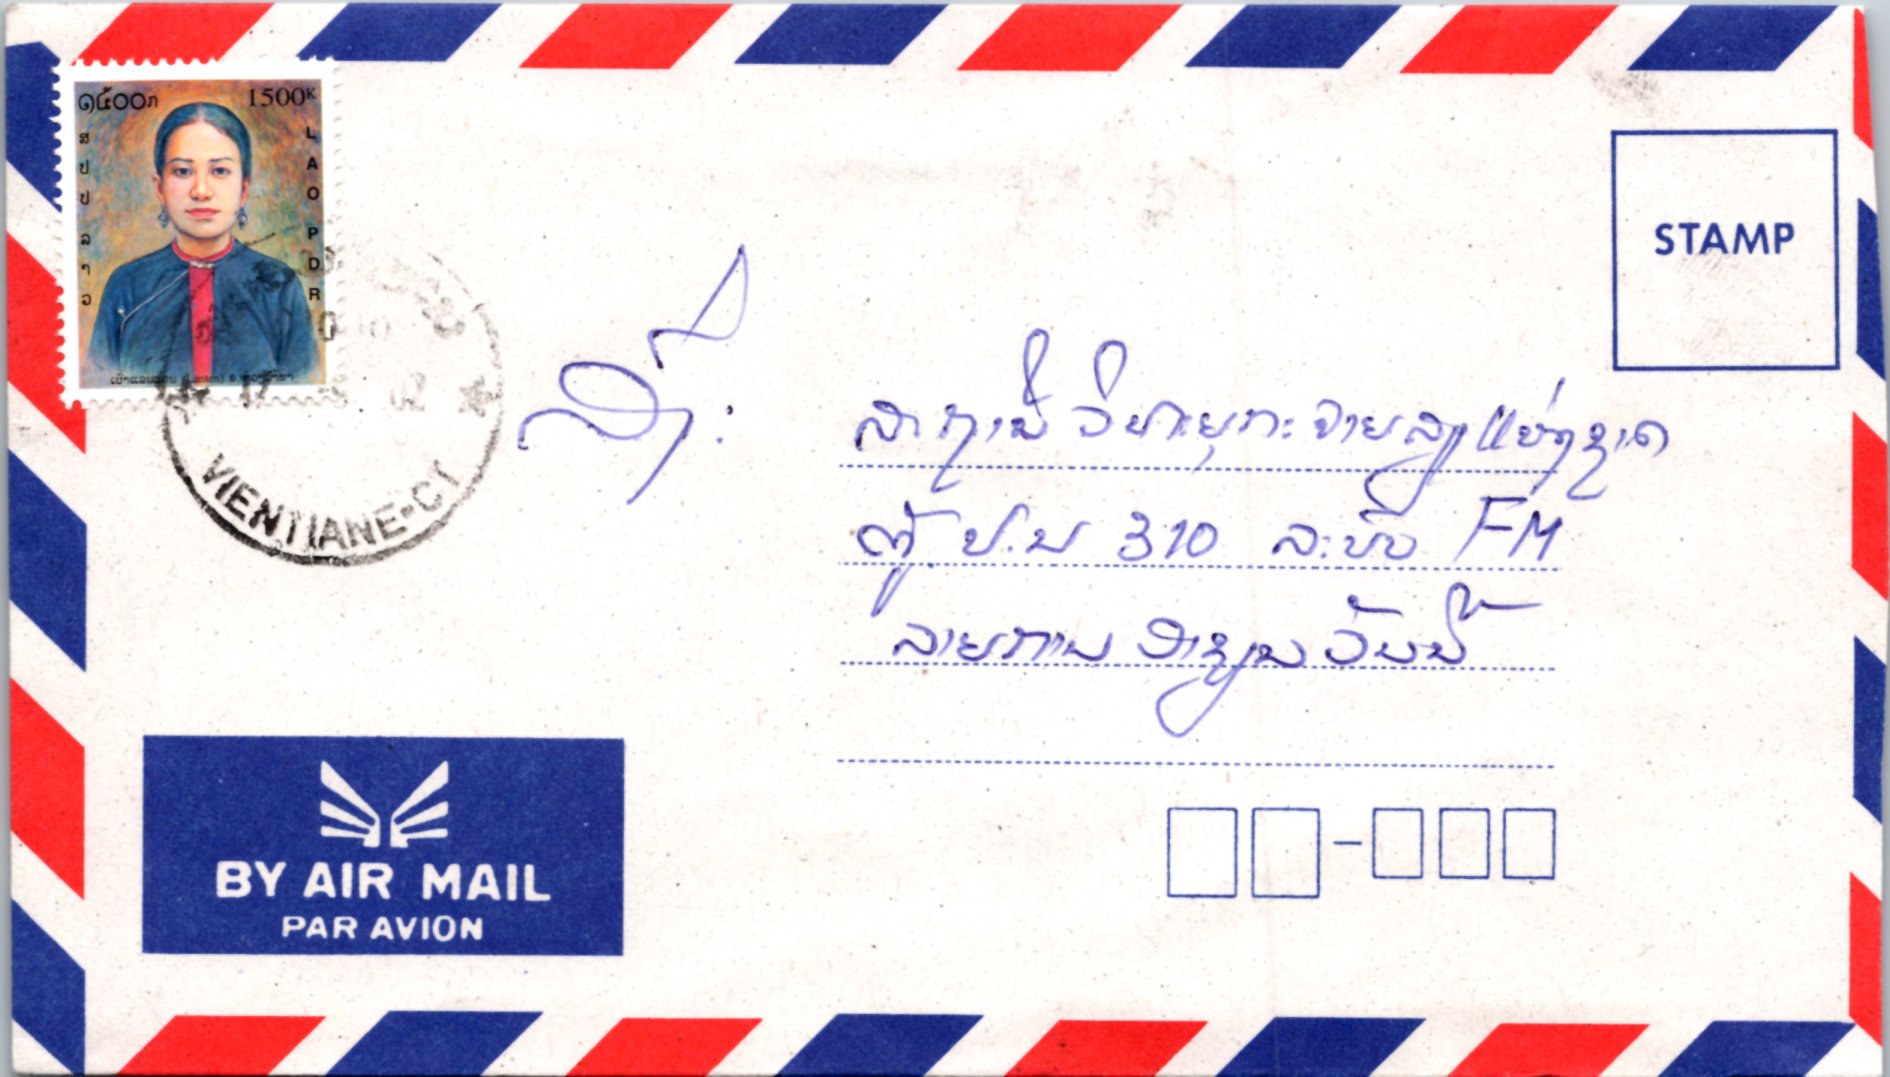 ໑໕໐໐ກ 1500K
ສປປລາວ
LAO PDR
VIENTIANE-CT
STAMP
ສົ່ງ:
ສະຖານີ ວິທຍຸກະຈາຍສຽງແຫ່ງຊາດ
ຕູ້ ປ.ນ 310 ລະບົບ FM
ລາຍການ
BY AIR MAIL
PAR AVION